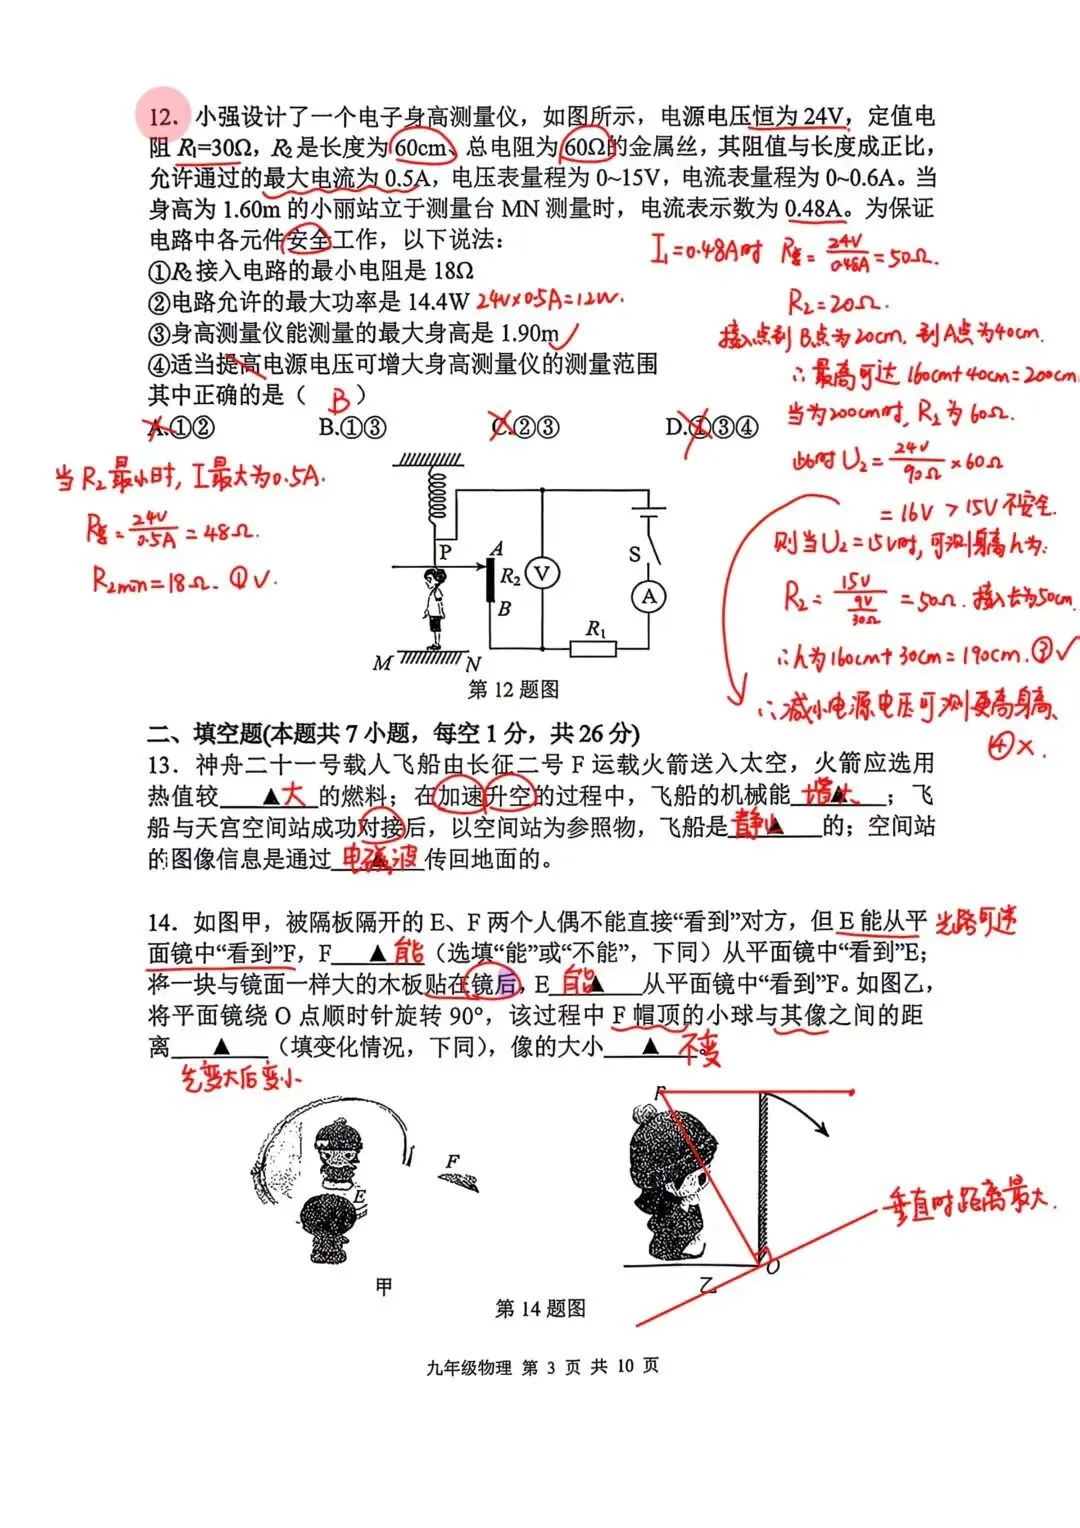 12．小强设计了一个电子身高测量仪，如图所示，电源电压恒为 24V，定值电
阻 R₁=30Ω，R₂是长度为 60cm、总电阻为 60Ω的金属丝，其阻值与长度成正比，
允许通过的最大电流为 0.5A，电压表量程为 0~15V，电流表量程为 0~0.6A。当
身高为 1.60m 的小丽站立于测量台 MN 测量时，电流表示数为 0.48A。为保证
电路中各元件安全工作，以下说法：
I₁=0.48A时 R总=24V/0.48A=50Ω.
①R₂接入电路的最小电阻是 18Ω
②电路允许的最大功率是 14.4W 24V×0.5A=12W.
R₂=20Ω.
③身高测量仪能测量的最大身高是 1.90m✓
接入点到B点为20cm, 到A点为40cm.
④适当提高电源电压可增大身高测量仪的测量范围
∴最高可达 160cm+40cm=200cm
其中正确的是（ B ）
当为200cm时, R₂为60Ω.
A.①② B.①③ C.②③ D.①③④
此时 U₂=24V/90Ω×60Ω
=16V > 15V 不安全.
则当U₂=15V时, 可测身高h为:
R₂=15V/(9V/30Ω)=50Ω. 接入长为50cm
∴h为160cm+30cm=190cm. ③✓
∴减小电源电压可测更高身高、
④×.
当R₂最小时, I最大为0.5A.
R总=24V/0.5A=48Ω.
R₂min=18Ω. ①✓.
P A R₂ B V S A R₁ M N
第 12 题图
二、填空题(本题共 7 小题，每空 1 分，共 26 分)
13．神舟二十一号载人飞船由长征二号 F 运载火箭送入太空，火箭应选用
热值较▲大的燃料；在加速升空的过程中，飞船的机械能▲增大；飞
船与天宫空间站成功对接后，以空间站为参照物，飞船是静止▲的；空间站
的图像信息是通过电磁波▲传回地面的。
14．如图甲，被隔板隔开的 E、F 两个人偶不能直接“看到”对方，但 E 能从平 光路可逆
面镜中“看到”F，F▲能（选填“能”或“不能”，下同）从平面镜中“看到”E；
将一块与镜面一样大的木板贴在镜后，E能▲从平面镜中“看到”F。如图乙，
将平面镜绕 O 点顺时针旋转 90°，该过程中 F 帽顶的小球与其像之间的距
离▲（填变化情况，下同），像的大小▲不变。
先变大后变小
F E
甲
F O
乙
垂直时距离最大.
第 14 题图
九年级物理 第 3 页 共 10 页